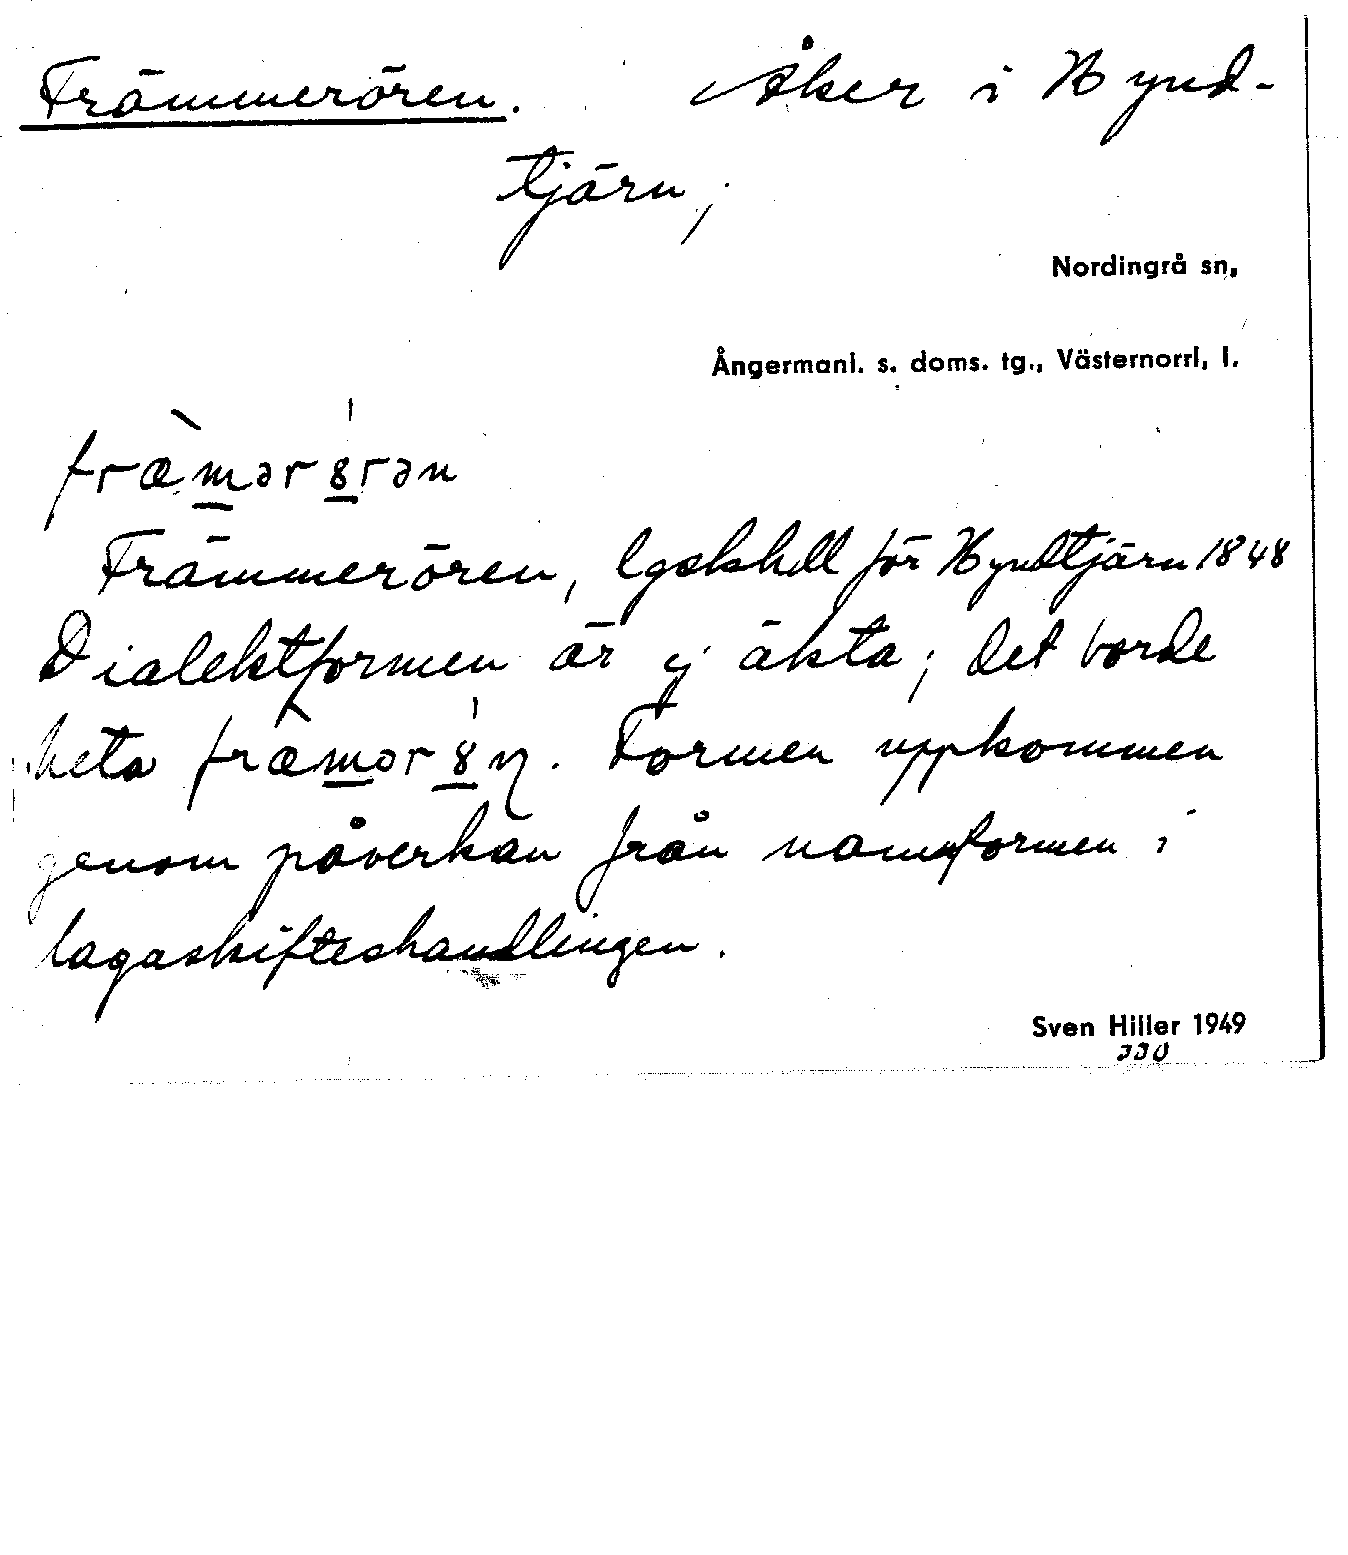 Främmerören. Åker i Hynd-
tjärn,
Nordingrå sn,
Ångermanl. s. doms. tg., Västernorrl, l.
fræmər8rən
Främmerören, lgskhdl för Hyndtjärn 1848
Dialektformen är ej äkta; det borde
heta fræmər8ṇ. Formen uppkommen
genom påverkan från namnformen i
lagaskifteshandlingen.
Sven Hiller 1949